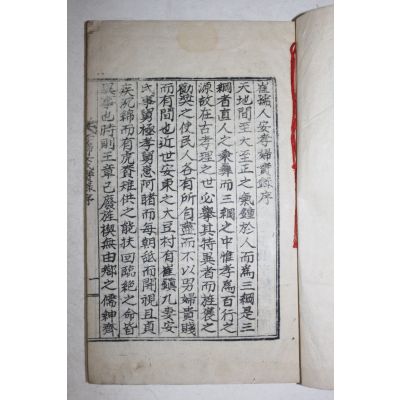 崔孺人安孝婦實錄序
天地間至大至正之氣鍾於人而爲三綱是三
綱者直人之秉彝而三綱之中惟孝爲百行之
源故在古孝理之世必擧其特異者而旌褒之
勸獎之使民人各有所自盡而不以男婦貴賤
而有間也近世安東之大豆村有崔鎭九妻安
氏事舅極孝舅患阿睹而每朝舐而開視且貞
疾沉綿而有虎賁雉供之能扶回臨絶之命皆
異事也時則王章已廢旌楔無由鄕之儒紳齊